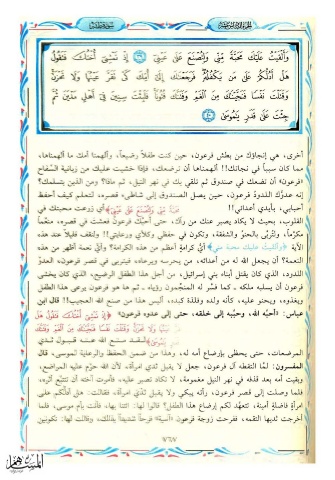 وَأَلْقَيْتُ عَلَيْكَ مَحَبَّةً مِّنِّي وَلِتُصْنَعَ عَلَىٰ عَيْنِي ﴿٣٩﴾ إِذْ تَمْشِي أُخْتُكَ فَتَقُولُ
هَلْ أَدُلُّكُمْ عَلَىٰ مَن يَكْفُلُهُ فَرَجَعْنَاكَ إِلَىٰ أُمِّكَ كَيْ تَقَرَّ عَيْنُهَا وَلَا تَحْزَنَ
وَقَتَلْتَ نَفْسًا فَنَجَّيْنَاكَ مِنَ الْغَمِّ وَفَتَنَّاكَ فُتُونًا فَلَبِثْتَ سِنِينَ فِي أَهْلِ مَدْيَنَ ثُمَّ
جِئْتَ عَلَىٰ قَدَرٍ يَا مُوسَىٰ ﴿٤٠﴾
أخرى، هي إنجاؤك من بطش فرعون، حين كنت طفلاً رضيعاً، وألهمنا أمك ما ألهمناها،
مما كان سبباً في نجاتك!! ألهمناها أن ترضعك، فإذا خشيت عليك من زبانية السفّاح
«فرعون» أن تضعك في صندوق ثم تلقي بك في نهر النيل، ثم ماذا؟ ومن الذين يتسلمك؟
إنه عدوُّك اللدود فرعون، حين يصل الصندوق إلى شاطىء قصره، لتعلم كيف أحفظ
أحبابي، بأيدي أعدائي!! ﴿وألقيت عليك محبة مني ولتصنع على عيني﴾ أي زرعت محبتك في
القلوب، بحيث لا يكاد يصبر عنك من رآك، حتى أحبَّك فرعونُ فعشت في قصره، منعّماً
مكرّماً، وتُربّى بالحنوّ والشفقة، وتكون في حفظي وكلاءي ورعايتي!! ولنقف قليلاً عند هذه
الآية ﴿وألقيت عليك محبة مني﴾ أيُّ كرامةٍ أعظم من هذه الكرامة؟ وأيُّ نعمة أظهر من هذه
النعمة؟ أن يجعل الله له من أعدائه، من يحرسه ويرعاه، فيتربى في قصر فرعون، العدوّ
اللدود، الذي كان يقتل أبناء بني إسرائيل، من أجل هذا الطفل الرضيع، الذي كان يخشى
فرعون أن يسلبه ملكه، كما فسّر له المنجّمون رؤياه، ثم ها هو فرعون يرعى هذا الطفل
ويغذوه، ويحنو عليه، كأنه ولده وفلذة كبده، أليس هذا من صنع الله العجيب؟! قال ابن
عباس: «أحبَّه الله، وحبَّبه إلى خلقه، حتى إلى عدوه فرعون»
المرضعات، حتى يحظى بإرضاع أمه له، وهذا من ضمن الحفظ والرعاية لموسى، قال
المفسرون: لمّا التقطه آل فرعون، جعل لا يقبل ثدي امرأة، لأن الله حرّم عليه المراضع،
وبقيت أمه بعد قذفه في نهر النيل مغمومة، لا تكاد تصبر عليه، فأمرت أخته أن تتتبّع أثره،
فلما وصلت إلى قصر فرعون، رأته يبكي ولا يقبل ثديَ امرأة، فقالت: هل أدلكم على
امرأةٍ فاضلةٍ أمينة، تتعهّد لكم إرضاع هذا الطفل؟ قالوا لها: ائتنا بها، فأتت بأم موسى، فلما
أخرجت ثديها التقمه، ففرحت زوجة فرعون «آسية» فرحاً شديداً بذلك، وقالت لها: تكونين
٧٦٧